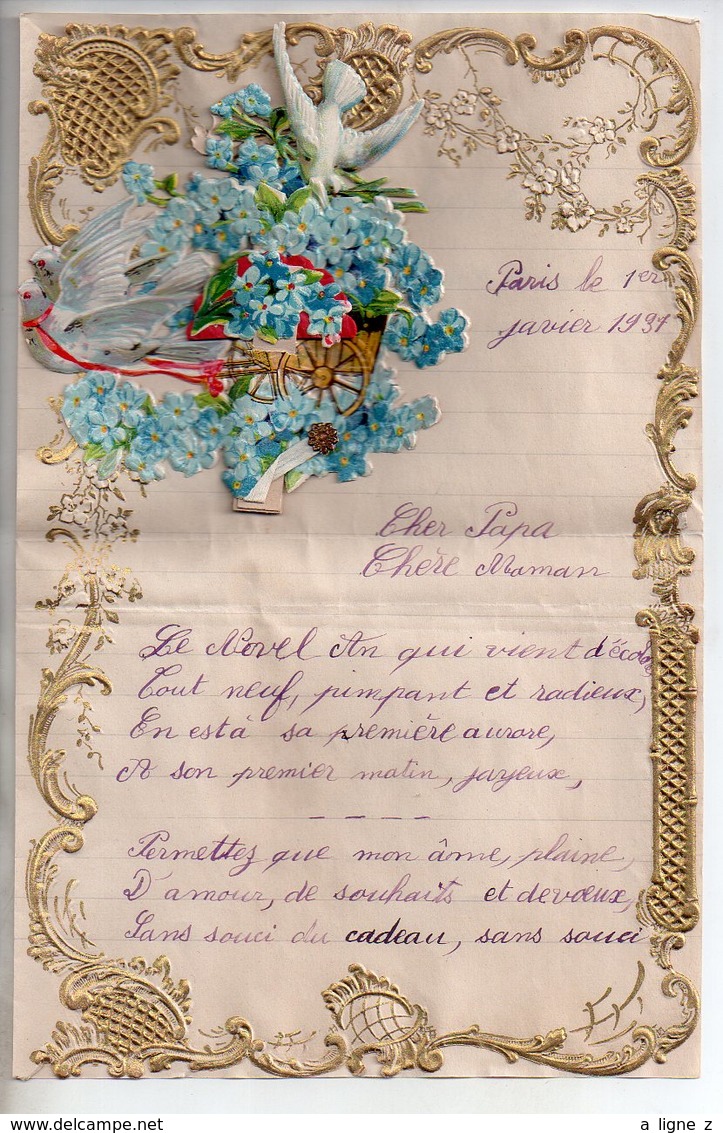 Paris le 1er
javier 1931
Cher Papa
Chère Maman
Le Novel An qui vient d'éclore
Tout neuf, pimpant et radieux,
En est à sa première aurore,
A son premier matin, jayeux,
----
Permettez que mon âme, plaine,
D'amour, de souhaits et devœux,
Sans souci du cadeau, sans souci
a ligne z